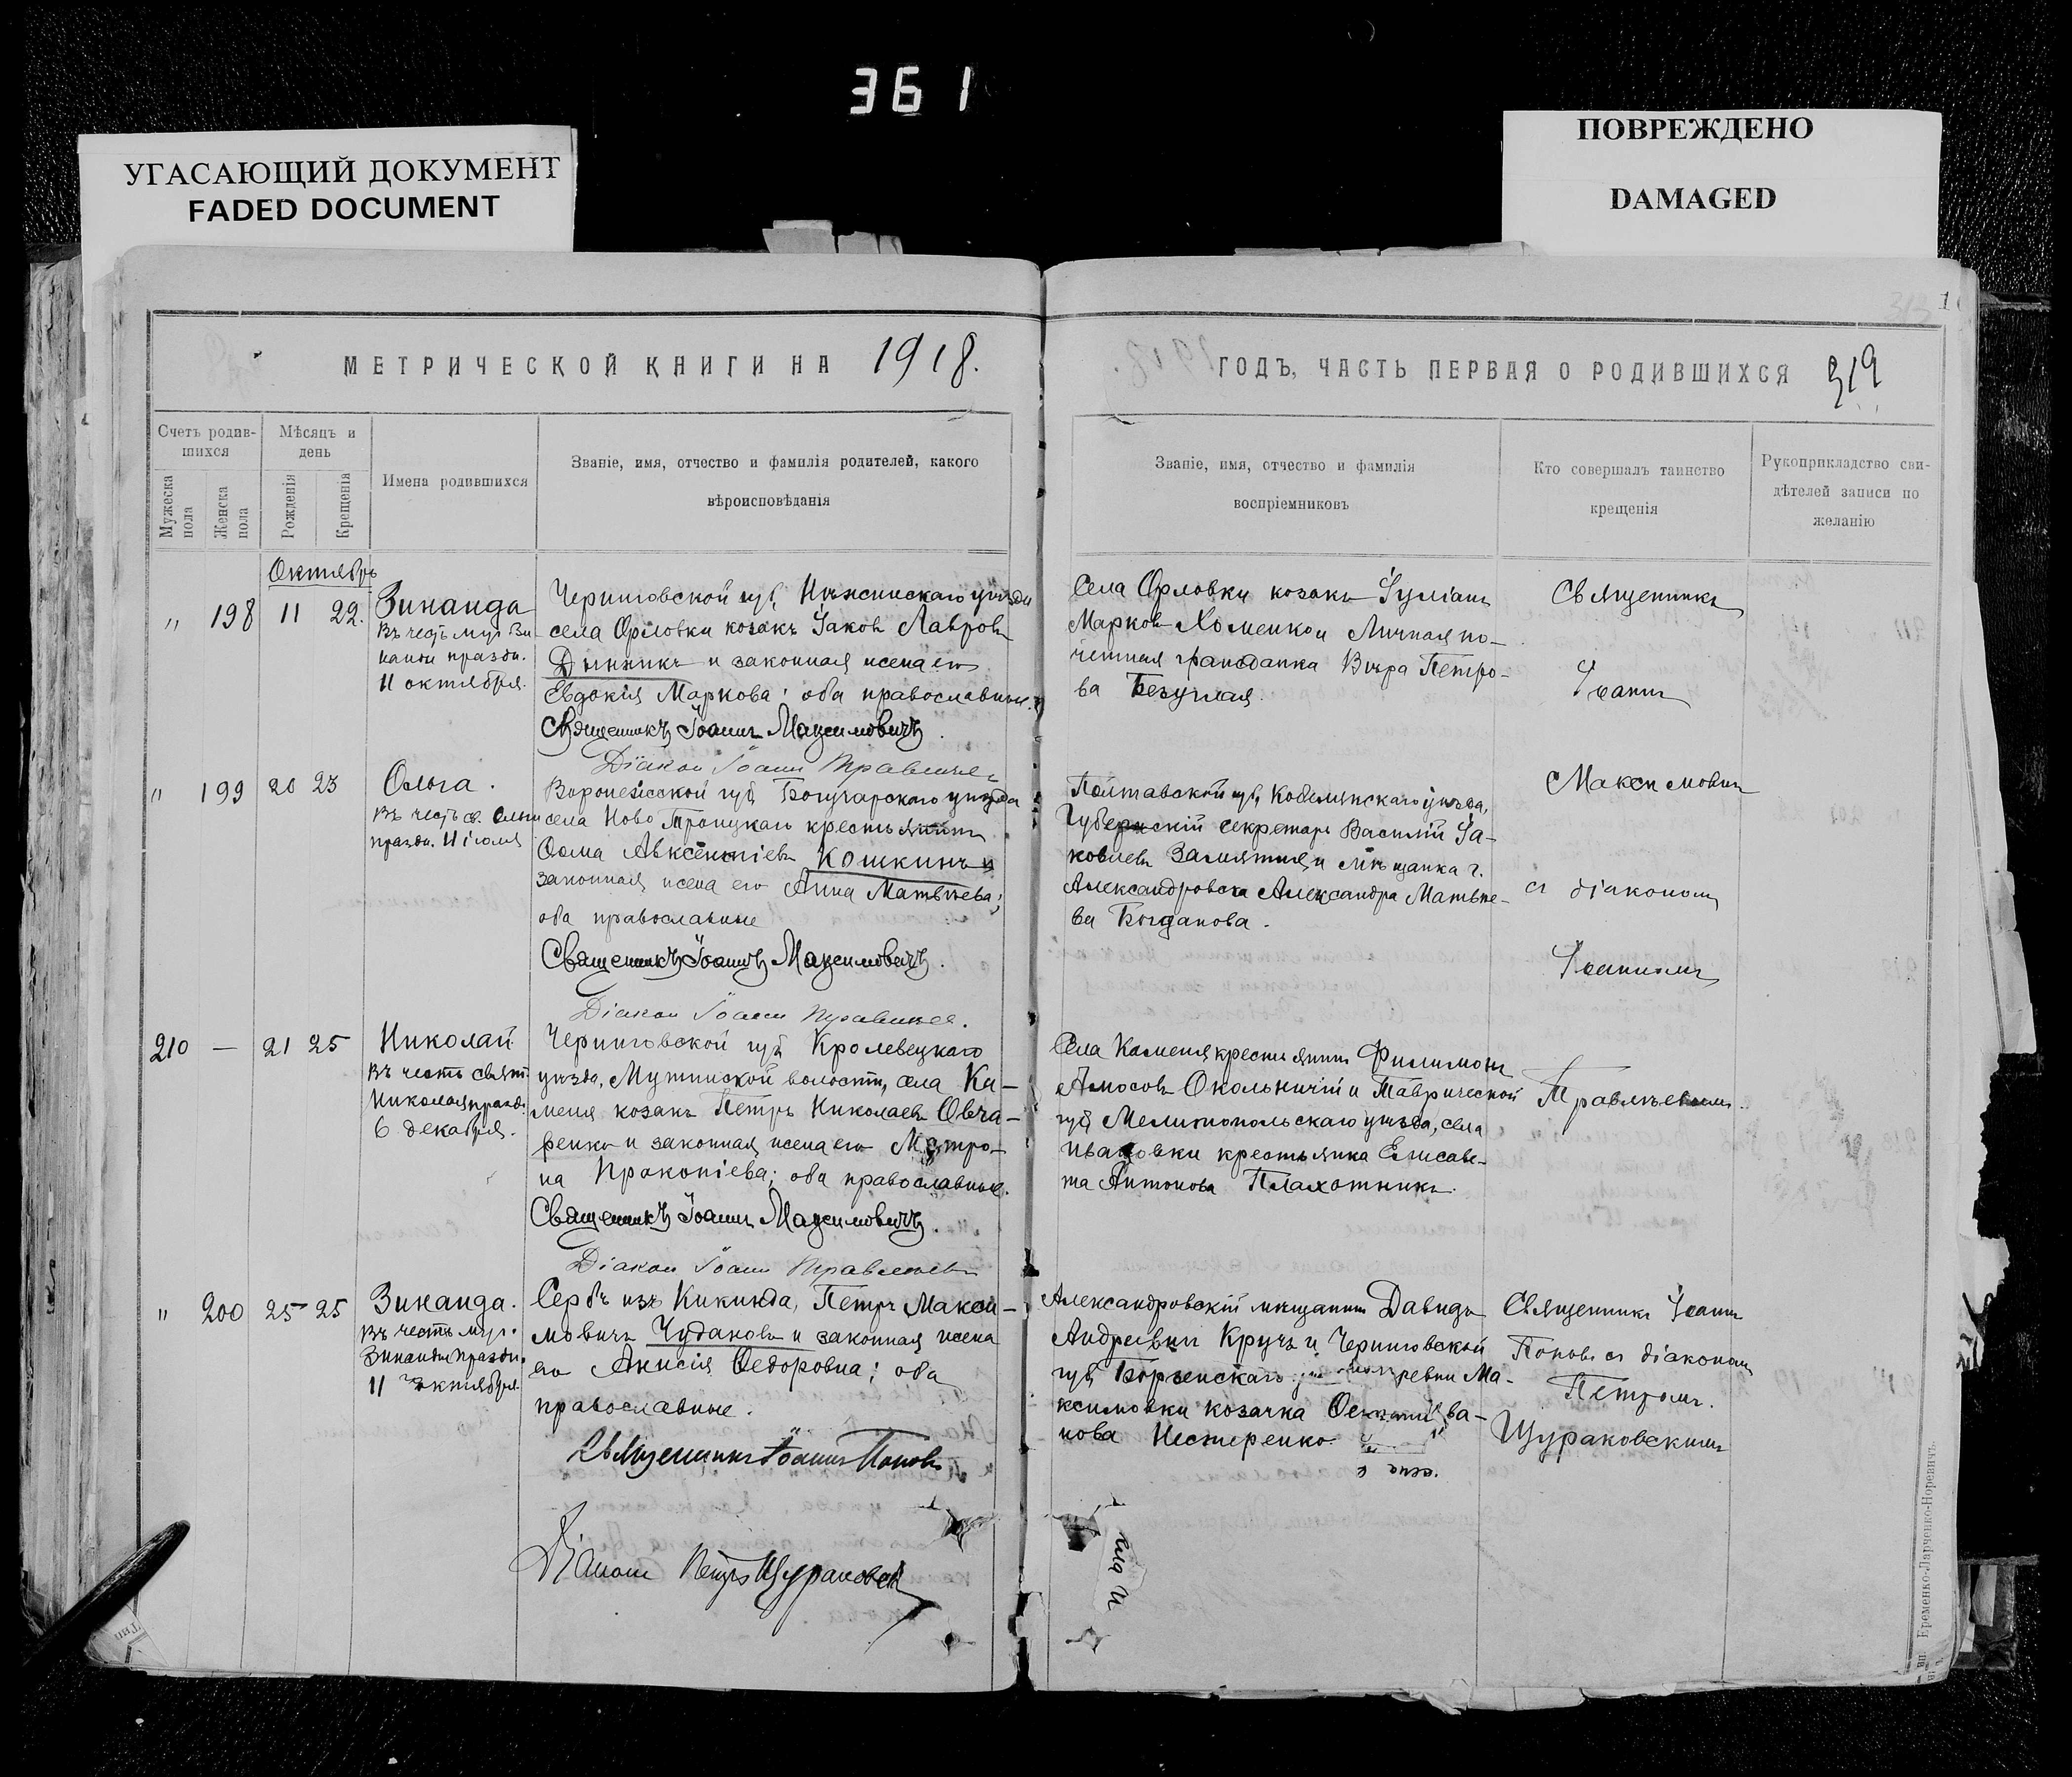 361
УГАСАЮЩИЙ ДОКУМЕНТ
FADED DOCUMENT
ПОВРЕЖДЕНО
DAMAGED
МЕТРИЧЕСКОЙ КНИГИ НА 1918.
Счетъ родив-
шихся
Мужеска
пола
Женска
пола
Мѣсяцъ и
день
Рожденія
Крещенія
Имена родившихся
Званіе, имя, отчество и фамилія родителей, какого
вѣроисповѣданія
Октябрь
" 198 11 22.
Зинаида
Въ честь муч. Зи-
наиды праздн.
11 октября.
Черниговской губ. Нѣжинскаго уѣзда
села Орловки козакъ Іаковъ Лавровъ
Дынникъ и законная жена его
Евдокія Маркова; оба православные.
Священникъ Іоаннъ Максимовичъ.
Діакон Іоанн Травлѣевъ
" 199 20 23
Ольга.
Въ честь св. Ольги
праздн. 11 іюля
Воронежской губ. Богучарскаго уѣзда
села Ново Троицкаго крестьянинъ
Ѳома Авксентіевъ Кошкинъ и
законная жена его Анна Матвѣева;
оба православные
Священникъ Іоаннъ Максимовичъ.
Діакон Іоанн Травлѣев.
210 — 21 25
Николай
Въ честь свят.
Николая празд.
6 декабря.
Черниговской губ. Кролевецкаго
уѣзда, Мутинской волости, села Ка-
меня козакъ Петръ Николаевъ Овча-
ренко и законная жена его Матро-
на Прокопіева; оба православные.
Священникъ Іоаннъ Максимовичъ.
Діакон Іоанн Травлѣевъ
" 200 25 25
Зинаида.
Въ честь муч.
Зинаиды праздн.
11 октября.
Сербъ изъ Кикинда, Петръ Макси-
мовичъ Чудаковъ и законная жена
его Анисія Ѳедоровна; оба
православные.
Священникъ Іоаннъ Поповъ
Діаконъ Петръ Щураковскій
ГОДЪ, ЧАСТЬ ПЕРВАЯ О РОДИВШИХСЯ 319
Званіе, имя, отчество и фамилія
воспріемниковъ
Кто совершалъ таинство
крещенія
Рукоприкладство сви-
дѣтелей записи по
желанію
Села Орловки козакъ Іуліанъ
Марковъ Хоменко и Личная по-
четная гражданка Вѣра Петро-
ва Безуглая.
Полтавской губ. Кобелякскаго уѣзда,
Губернскій секретарь Василій Іа-
ковлевъ Замятня и мѣщанка г.
Александровска Александра Матвѣе-
ва Богданова.
Села Каменя крестьянинъ Филимонъ
Амосовъ Окольничій и Таврической
губ. Мелитопольскаго уѣзда, села
Ивановки крестьянка Елисаве-
та Антонова Плахотникъ.
Александровскій мѣщанинъ Давидъ
Андреевъ Кручъ и Черниговской
губ. Борзенскаго ревни Ма-
ксимовки козачка ва-
нова Нестеренко.
Священникъ
Іоаннъ
Максимовичъ
съ діакономъ
Іоанномъ
Травлѣевымъ.
Священникъ Іоаннъ
Поповъ съ діакономъ
Петромъ.
Щураковскимъ
Еременко-Ларченко-Норевичъ.